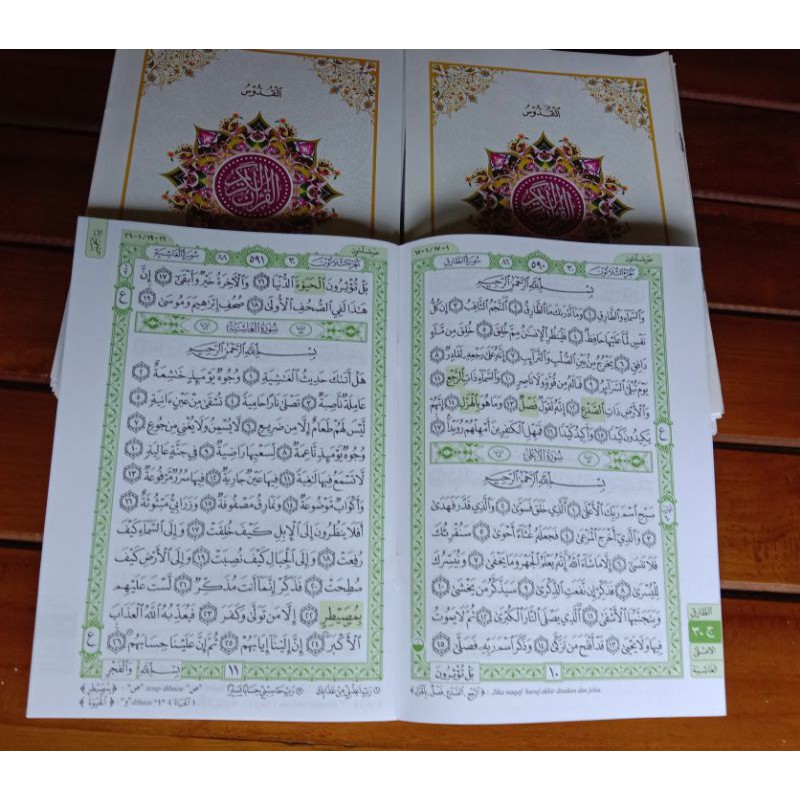 القدوس
القدوس
القرآن الكريم
القرآن الكريم
الجزء الثلاثون ٣٠ ٥٩٠ ٨٦ سورة الطارق
بِسْمِ ٱللَّهِ ٱلرَّحْمَٰنِ ٱلرَّحِيمِ
وَٱلسَّمَآءِ وَٱلطَّارِقِ ١ وَمَآ أَدْرَىٰكَ مَا ٱلطَّارِقُ ٢ ٱلنَّجْمُ ٱلثَّاقِبُ ٣ إِن كُلُّ
نَفْسٍ لَّمَّا عَلَيْهَا حَافِظٌ ٤ فَلْيَنظُرِ ٱلْإِنسَٰنُ مِمَّ خُلِقَ ٥ خُلِقَ مِن مَّآءٍ
دَافِقٍ ٦ يَخْرُجُ مِنۢ بَيْنِ ٱلصُّلْبِ وَٱلتَّرَآئِبِ ٧ إِنَّهُۥ عَلَىٰ رَجْعِهِۦ لَقَادِرٌ ٨
يَوْمَ تُبْلَى ٱلسَّرَآئِرُ ٩ فَمَا لَهُۥ مِن قُوَّةٍ وَلَا نَاصِرٍ ١٠ وَٱلسَّمَآءِ ذَاتِ ٱلرَّجْعِ ١١
وَٱلْأَرْضِ ذَاتِ ٱلصَّدْعِ ١٢ إِنَّهُۥ لَقَوْلٌ فَصْلٌ ١٣ وَمَا هُوَ بِٱلْهَزْلِ ١٤ إِنَّهُمْ
يَكِيدُونَ كَيْدًا ١٥ وَأَكِيدُ كَيْدًا ١٦ فَمَهِّلِ ٱلْكَٰفِرِينَ أَمْهِلْهُمْ رُوَيْدًۢا ١٧
سورة الأعلى
بِسْمِ ٱللَّهِ ٱلرَّحْمَٰنِ ٱلرَّحِيمِ
سَبِّحِ ٱسْمَ رَبِّكَ ٱلْأَعْلَى ١ ٱلَّذِى خَلَقَ فَسَوَّىٰ ٢ وَٱلَّذِى قَدَّرَ فَهَدَىٰ
٣ وَٱلَّذِىٓ أَخْرَجَ ٱلْمَرْعَىٰ ٤ فَجَعَلَهُۥ غُثَآءً أَحْوَىٰ ٥ سَنُقْرِئُكَ
فَلَا تَنسَىٰٓ ٦ إِلَّا مَا شَآءَ ٱللَّهُ إِنَّهُۥ يَعْلَمُ ٱلْجَهْرَ وَمَا يَخْفَىٰ ٧ وَنُيَسِّرُكَ
لِلْيُسْرَىٰ ٨ فَذَكِّرْ إِن نَّفَعَتِ ٱلذِّكْرَىٰ ٩ سَيَذَّكَّرُ مَن يَخْشَىٰ ١٠
وَيَتَجَنَّبُهَا ٱلْأَشْقَى ١١ ٱلَّذِى يَصْلَى ٱلنَّارَ ٱلْكُبْرَىٰ ١٢ ثُمَّ لَا يَمُوتُ
فِيهَا وَلَا يَحْيَىٰ ١٣ قَدْ أَفْلَحَ مَن تَزَكَّىٰ ١٤ وَذَكَرَ ٱسْمَ رَبِّهِۦ فَصَلَّىٰ ١٥
١٠ بَلْ تُؤْثِرُونَ
Jika waqaf huruf akhir ditekan dan jelas.
الطارق
ج ٣٠
الاعلى
الغاشية
الجزء الثلاثون ٣٠ ٥٩١ ٨٨ سورة الغاشية
بَلْ تُؤْثِرُونَ ٱلْحَيَوٰةَ ٱلدُّنْيَا ١٦ وَٱلْءَاخِرَةُ خَيْرٌ وَأَبْقَىٰٓ ١٧ إِنَّ
هَٰذَا لَفِى ٱلصُّحُفِ ٱلْأُولَىٰ ١٨ صُحُفِ إِبْرَٰهِيمَ وَمُوسَىٰ ١٩
سورة الغاشية
بِسْمِ ٱللَّهِ ٱلرَّحْمَٰنِ ٱلرَّحِيمِ
هَلْ أَتَىٰكَ حَدِيثُ ٱلْغَٰشِيَةِ ١ وُجُوهٌ يَوْمَئِذٍ خَٰشِعَةٌ ٢
عَامِلَةٌ نَّاصِبَةٌ ٣ تَصْلَىٰ نَارًا حَامِيَةً ٤ تُسْقَىٰ مِنْ عَيْنٍ ءَانِيَةٍ ٥
لَّيْسَ لَهُمْ طَعَامٌ إِلَّا مِن ضَرِيعٍ ٦ لَّا يُسْمِنُ وَلَا يُغْنِى مِن جُوعٍ ٧
وُجُوهٌ يَوْمَئِذٍ نَّاعِمَةٌ ٨ لِّسَعْيِهَا رَاضِيَةٌ ٩ فِى جَنَّةٍ عَالِيَةٍ ١٠
لَّا تَسْمَعُ فِيهَا لَٰغِيَةً ١١ فِيهَا عَيْنٌ جَارِيَةٌ ١٢ فِيهَا سُرُرٌ مَّرْفُوعَةٌ ١٣
وَأَكْوَابٌ مَّوْضُوعَةٌ ١٤ وَنَمَارِقُ مَصْفُوفَةٌ ١٥ وَزَرَابِىُّ مَبْثُوثَةٌ ١٦
أَفَلَا يَنظُرُونَ إِلَى ٱلْإِبِلِ كَيْفَ خُلِقَتْ ١٧ وَإِلَى ٱلسَّمَآءِ كَيْفَ
رُفِعَتْ ١٨ وَإِلَى ٱلْجِبَالِ كَيْفَ نُصِبَتْ ١٩ وَإِلَى ٱلْأَرْضِ كَيْفَ
سُطِحَتْ ٢٠ فَذَكِّرْ إِنَّمَآ أَنتَ مُذَكِّرٌ ٢١ لَّسْتَ عَلَيْهِم
بِمُصَيْطِرٍ ٢٢ إِلَّا مَن تَوَلَّىٰ وَكَفَرَ ٢٣ فَيُعَذِّبُهُ ٱللَّهُ ٱلْعَذَابَ
ٱلْأَكْبَرَ ٢٤ إِنَّ إِلَيْنَآ إِيَابَهُمْ ٢٥ ثُمَّ إِنَّ عَلَيْنَا حِسَابَهُم ٢٦
١١ بسم الله والفجر
"ص" tetap dibaca "ص" ﴿بِمُصَيْطِرٍ﴾
"و" dibaca "ا" ﴿الحيوة﴾